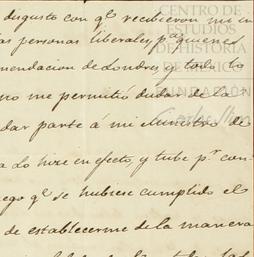 CENTRO DE
ESTUDIOS
DE HISTORIA
DE MÉXICO
FUNDACIÓN
Carlos Slim
disgusto con qe. recibieron mi in
las personas liberales, pa. quienes
mendacion de Londres, y todo lo
no me permitió dudar de la
dar parte á mi Ministro de
Lo hize en efecto, y tube pr. con
ego qe. se hubiese cumplido el
de establecerme de la manera